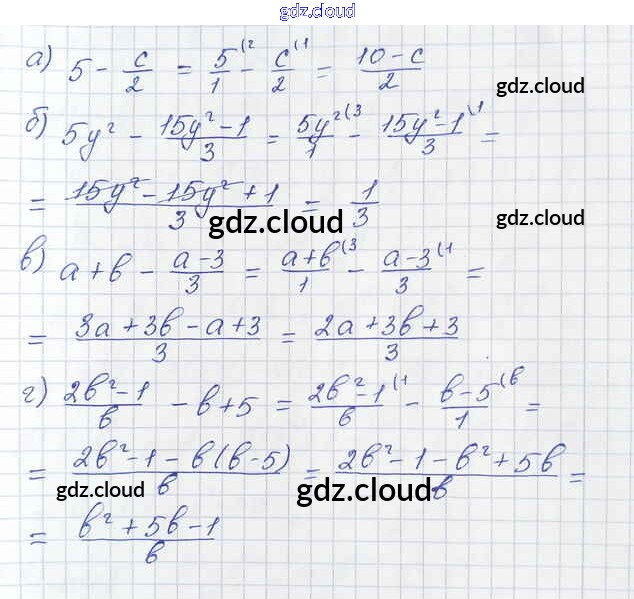 gdz.cloud
а) 5 - c/2 = 5/1 (2 - c/2 (1 = (10 - c)/2
gdz.cloud
б) 5y² - (15y² - 1)/3 = 5y²/1 (3 - (15y² - 1)/3 (1 =
= (15y² - 15y² + 1)/3 = 1/3
gdz.cloud gdz.cloud
в) a + b - (a - 3)/3 = (a + b)/1 (3 - (a - 3)/3 (1 =
= (3a + 3b - a + 3)/3 = (2a + 3b + 3)/3
г) (2b² - 1)/b - b + 5 = (2b² - 1)/b (1 - (b - 5)/1 (b =
= (2b² - 1 - b(b - 5))/b = (2b² - 1 - b² + 5b)/b =
gdz.cloud gdz.cloud
= (b² + 5b - 1)/b